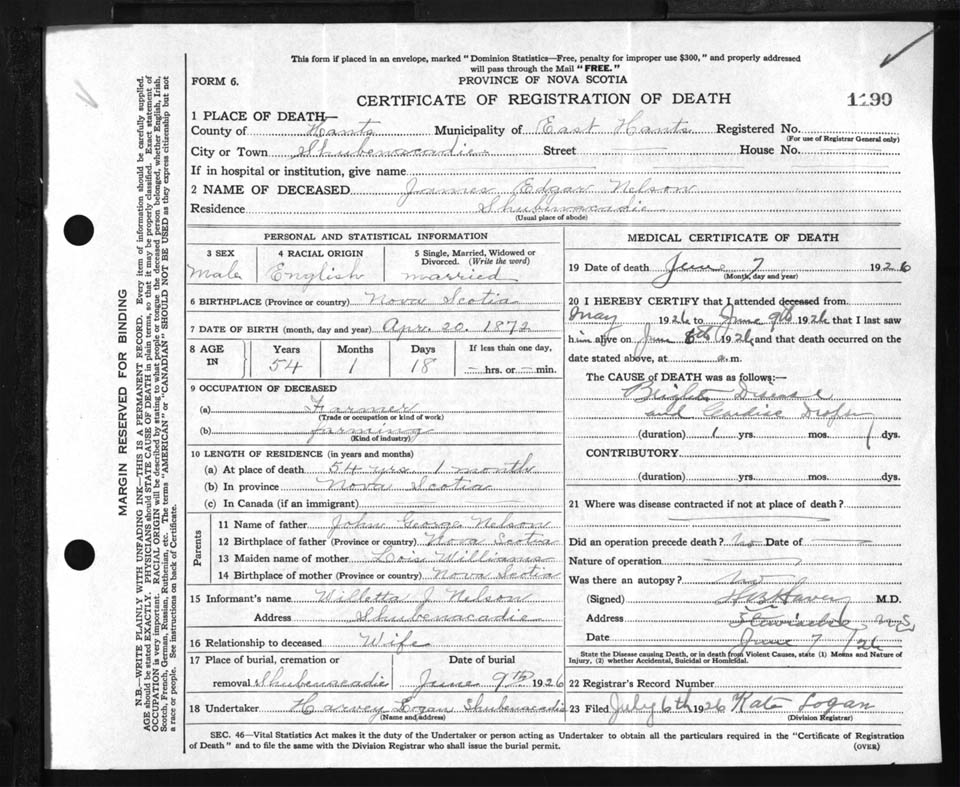 This form if placed in an envelope, marked "Dominion Statistics—Free, penalty for improper use $300," and properly addressed
will pass through the Mail "FREE."
FORM 6.
PROVINCE OF NOVA SCOTIA
CERTIFICATE OF REGISTRATION OF DEATH
1199
1 PLACE OF DEATH—
County of Hants Municipality of East Hants Registered No.
(For use of Registrar General only)
City or Town Shubenacadie Street — House No. —
If in hospital or institution, give name —
2 NAME OF DECEASED James Edgar Nelson
Residence Shubenacadie
(Usual place of abode)
PERSONAL AND STATISTICAL INFORMATION
3 SEX 4 RACIAL ORIGIN 5 Single, Married, Widowed or
Divorced. (Write the word)
Male English married
6 BIRTHPLACE (Province or country) Nova Scotia
7 DATE OF BIRTH (month, day and year) Apr. 20. 1872
8 AGE IN Years Months Days If less than one day,
54 1 18 — hrs. or — min.
9 OCCUPATION OF DECEASED
(a) Farmer
(Trade or occupation or kind of work)
(b) farming
(Kind of industry)
10 LENGTH OF RESIDENCE (in years and months)
(a) At place of death 54 yrs 1 month
(b) In province Nova Scotia
(c) In Canada (if an immigrant) —
Parents
11 Name of father John George Nelson
12 Birthplace of father (Province or country) Nova Scotia
13 Maiden name of mother Lois Williams
14 Birthplace of mother (Province or country) Nova Scotia
15 Informant's name Willetta J. Nelson
Address Shubenacadie
16 Relationship to deceased Wife
17 Place of burial, cremation or Date of burial
removal Shubenacadie June 9th 1926
18 Undertaker Harvey Logan Shubenacadie
(Name and address)
MEDICAL CERTIFICATE OF DEATH
19 Date of death June 7 1926
(Month, day and year)
20 I HEREBY CERTIFY that I attended deceased from
May 1926 to June 9th 1926 that I last saw
him alive on June 6th 1926 and that death occurred on the
date stated above, at a.m.
The CAUSE OF DEATH was as follows:—
Brights Disease
and Cardiac Dropsy
(duration) 1 yrs. mos. dys.
CONTRIBUTORY
(duration) yrs. mos. dys.
21 Where was disease contracted if not at place of death?
—
Did an operation precede death? No Date of —
Nature of operation —
Was there an autopsy? No
(Signed) M.D.
Address N S
Date June 7 /26
State the Disease causing Death, or in death from Violent Causes, state (1) Means and Nature of
Injury, (2) whether Accidental, Suicidal or Homicidal.
22 Registrar's Record Number
23 Filed July 6th 1926 Kate Logan
(Division Registrar)
SEC. 46—Vital Statistics Act makes it the duty of the Undertaker or person acting as Undertaker to obtain all the particulars required in the "Certificate of Registration
of Death" and to file the same with the Division Registrar who shall issue the burial permit.
(OVER)
MARGIN RESERVED FOR BINDING
N.B.—WRITE PLAINLY WITH UNFADING INK—THIS IS A PERMANENT RECORD. Every item of information should be carefully supplied.
AGE should be stated EXACTLY. PHYSICIANS should STATE CAUSE OF DEATH in plain terms, so that it may be properly classified. Exact statement of
OCCUPATION is very important. RACIAL ORIGIN will be described by stating to what people or tongue the deceased person belonged, whether English, Irish,
Scotch, French, German, Russian, Ruthenian, etc. The terms "AMERICAN" or "CANADIAN" SHOULD NOT BE USED as they express citizenship but not
a race or people. See instructions on back of Certificate.